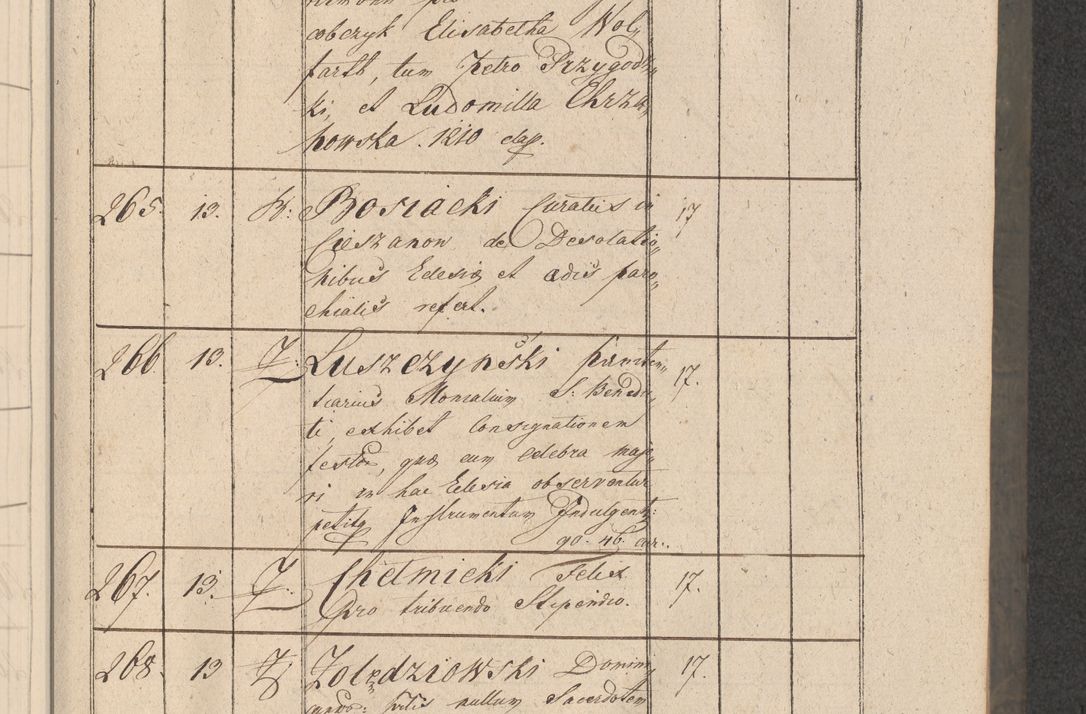 cobczyk Elisabetha Wol„
farth, tum Petro Przygodz„
ki, et Ludomilla Chrza„
nowska. 1810
265. 13. Bosiacki Curatus in 17
Cieszanow de Desolatio„
nibus Eclesiæ et ædis paro„
chialis refert.
266 13. Łuszczynski Pæniten„ 17.
tiarius Monialium S. Bendic„
ti, exhibet Consignationem
festor, quæ cum celebra majo„
ri in hac Eclesia observentur
petitq Instrumentum Indulgent:
267. 13. Chełmicki Felix 17.
Pro tribuendo Stipendio.
268. 13 Żolędziowski Domini„ 17.
nullum Sacerdotem